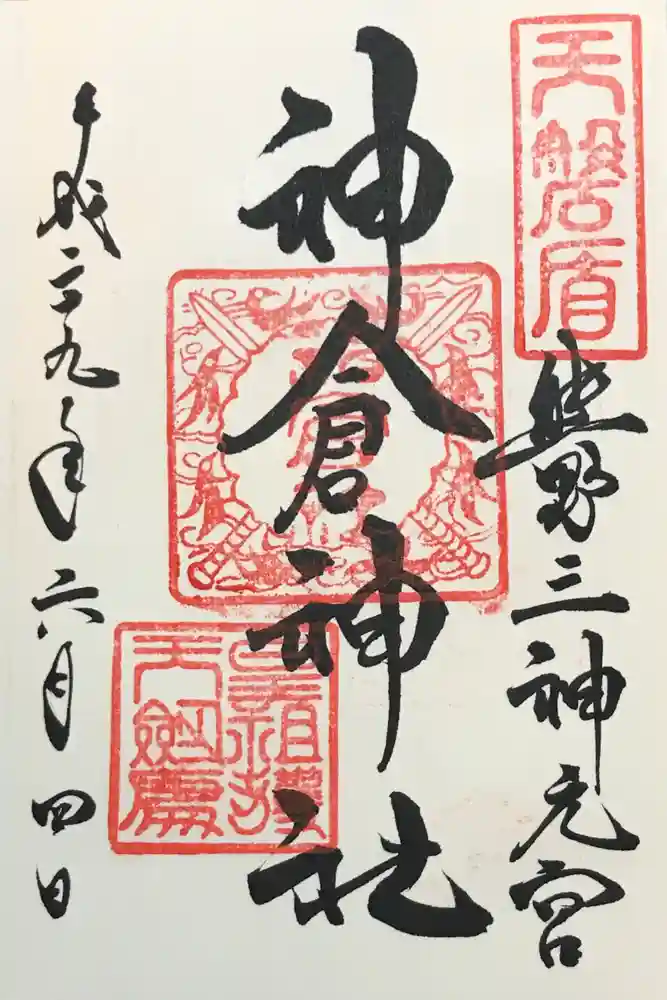 天磐盾
熊野三神元宮
神倉神社
平成二十九年六月四日